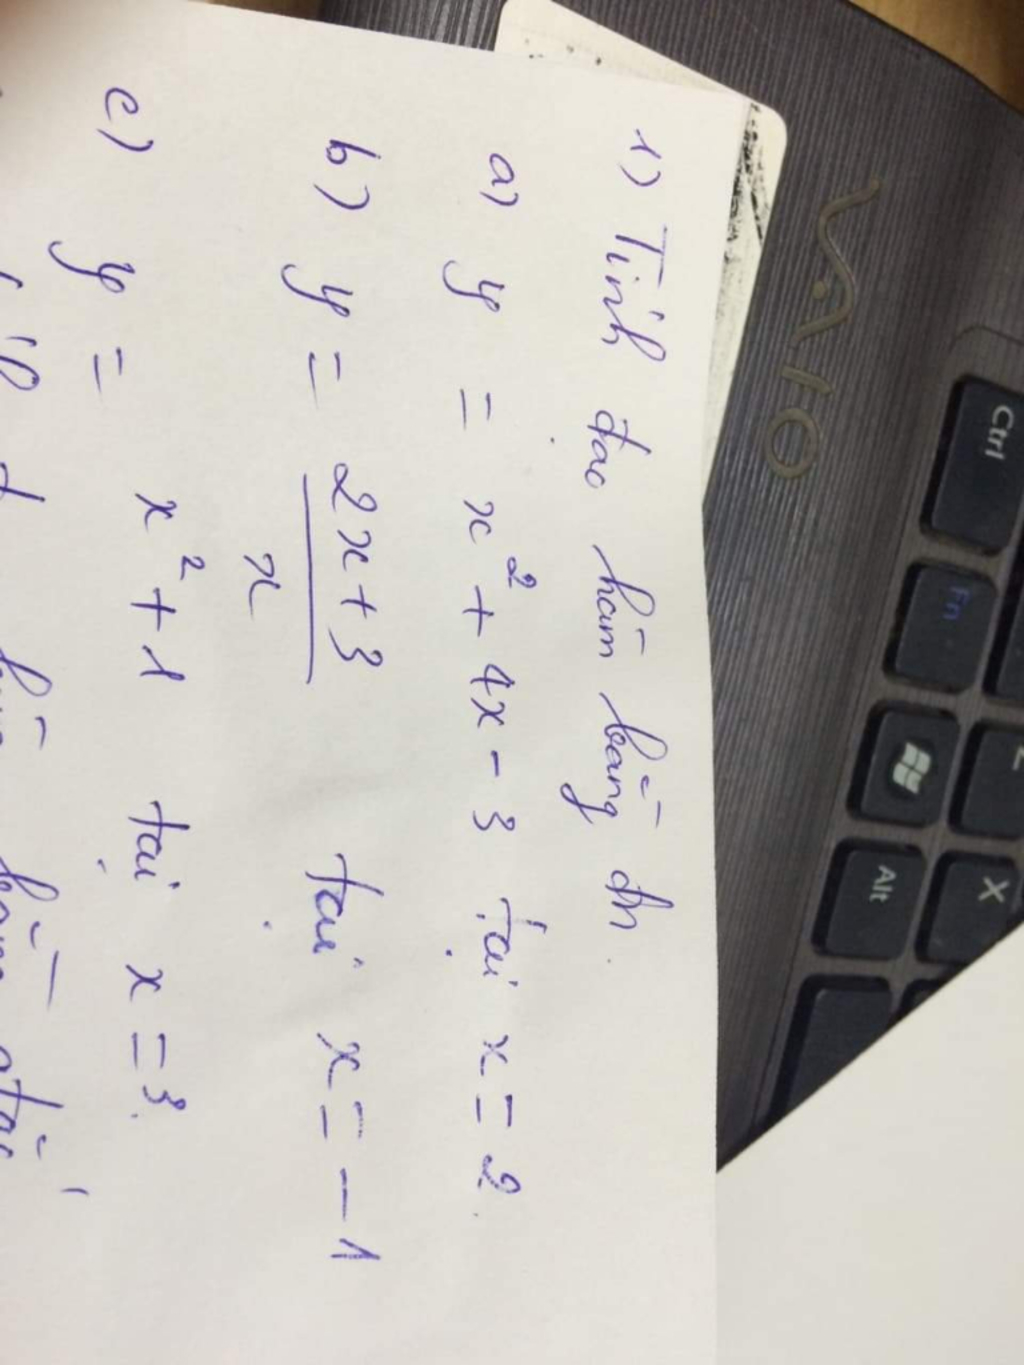 1) Tính đạo hàm bằng đn.
a) y = x² + 4x - 3 tại x = 2.
b) y = \frac{2x+3}{x} tại x = -1
c) y = x² + 1 tại x = 3.
VAIO
Ctrl
Fn
Alt
X